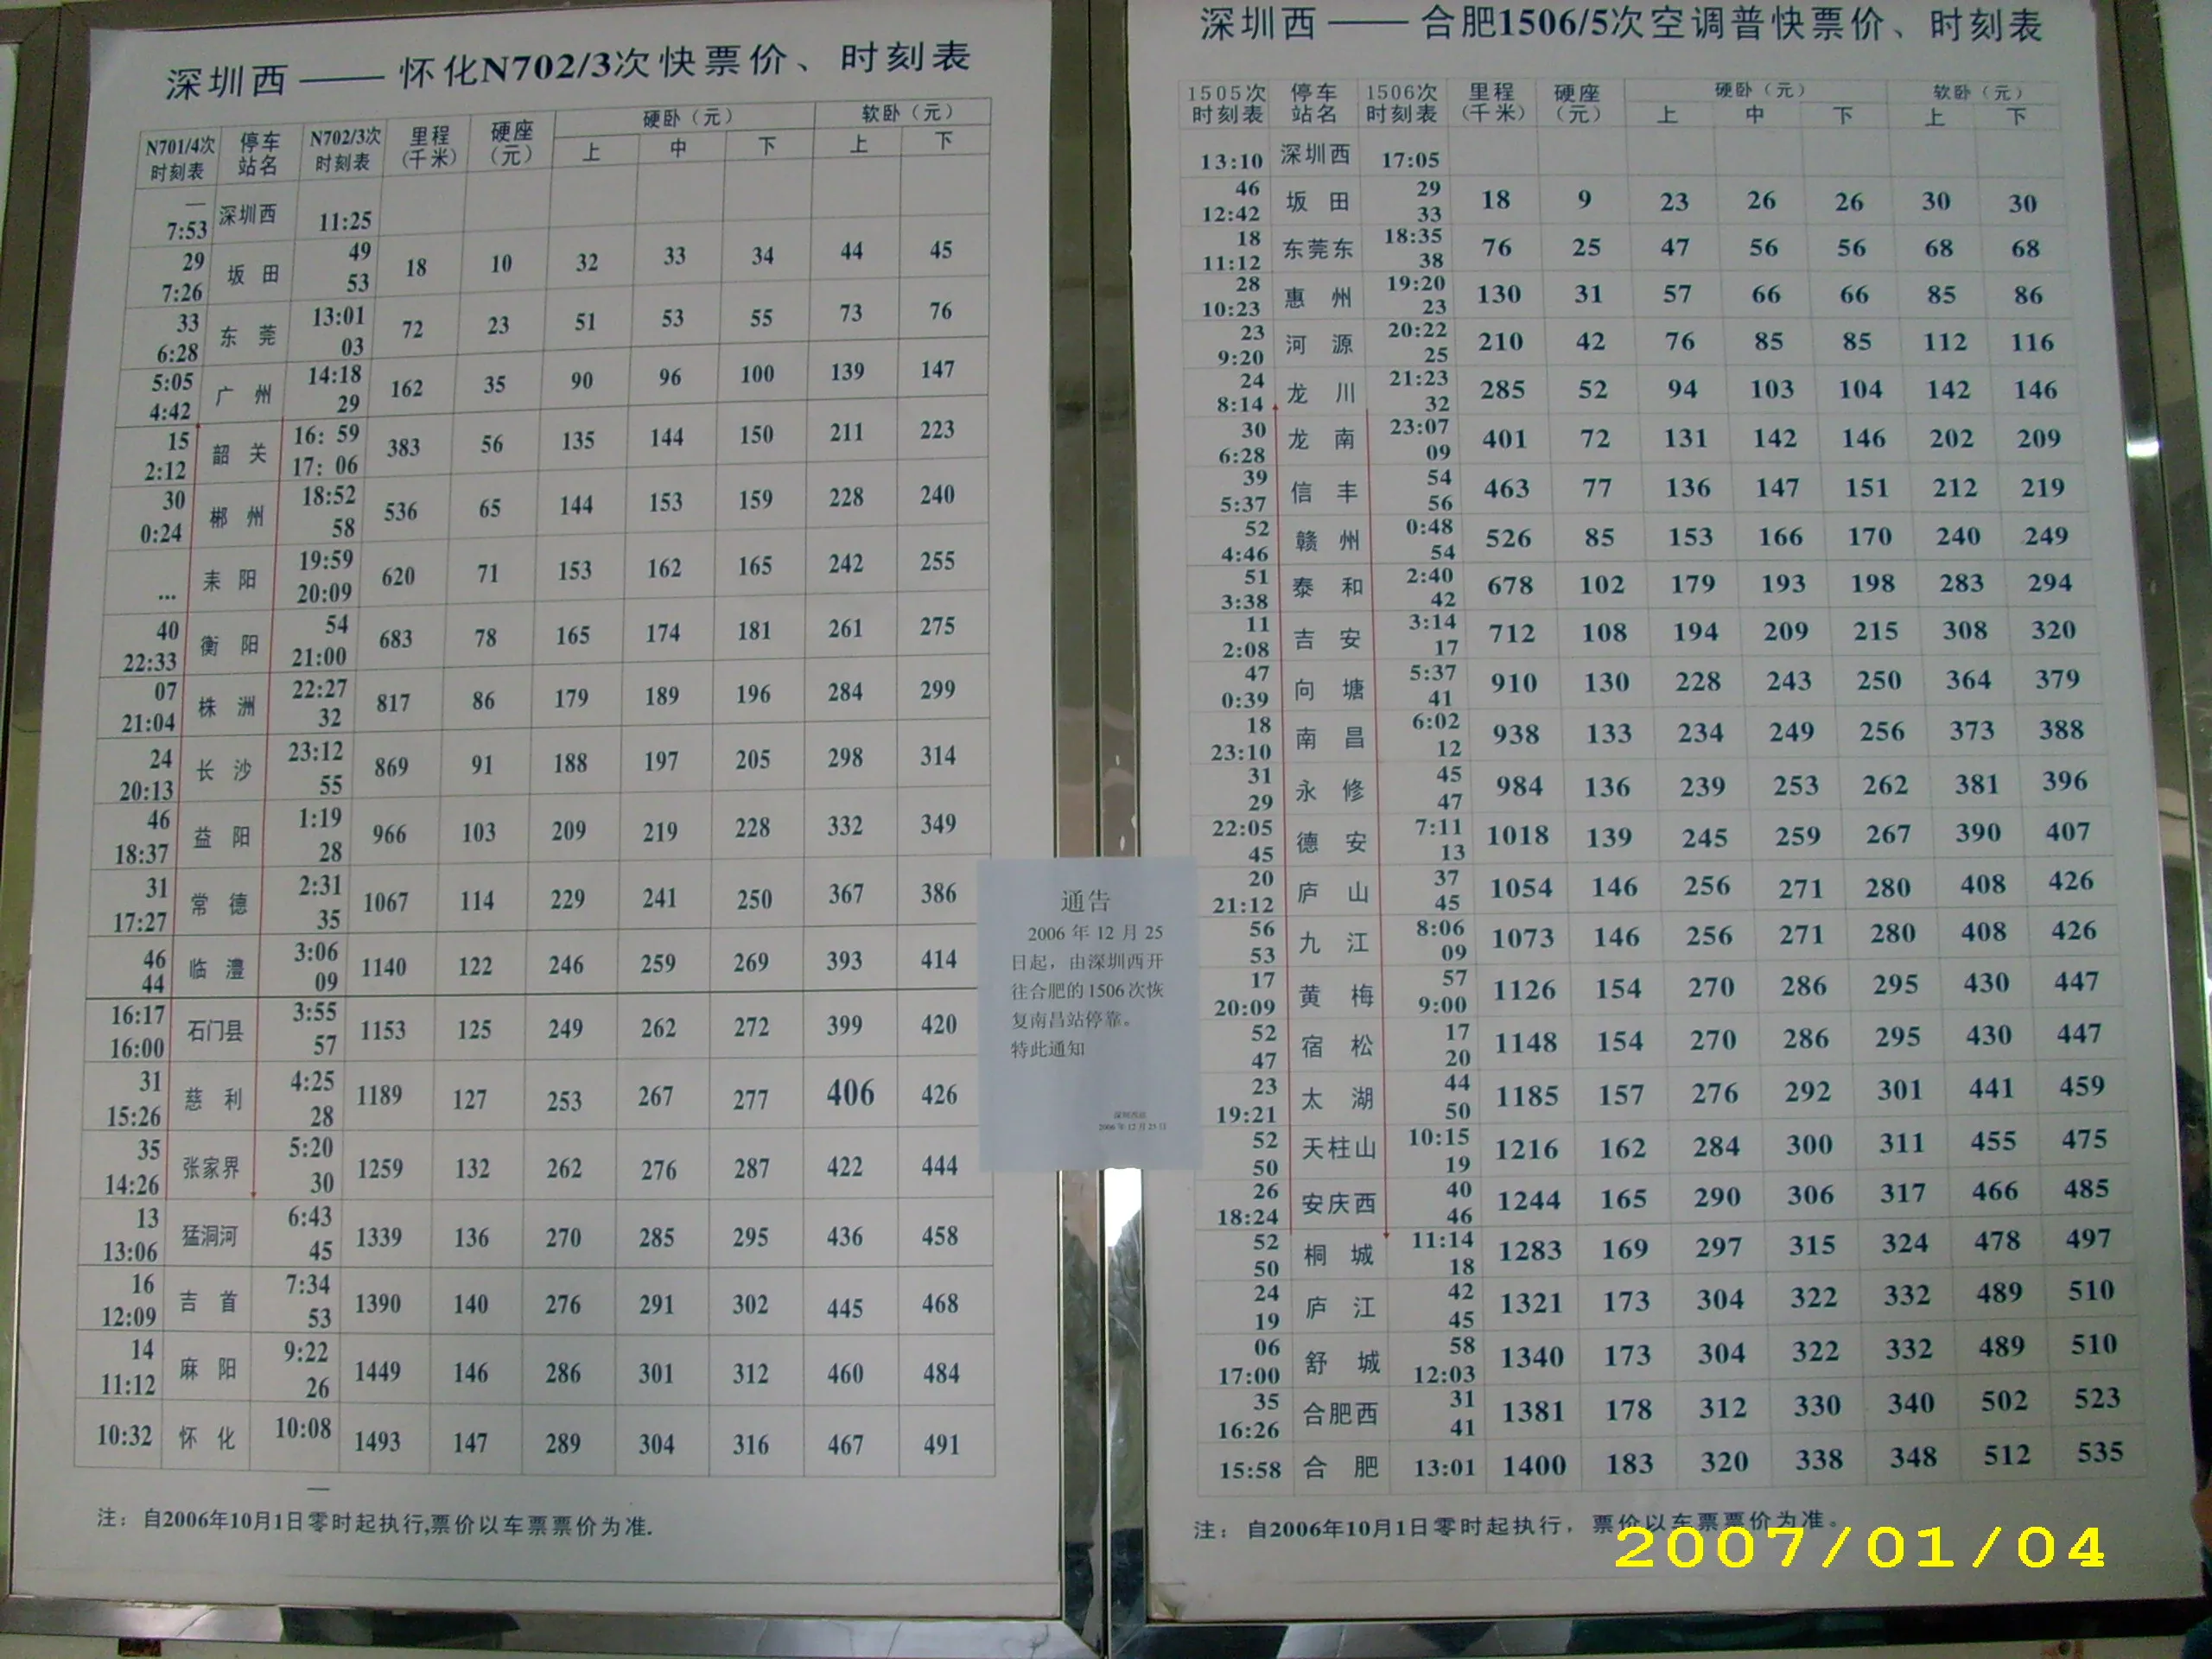 深圳西 —— 怀化N702/3次快票价、时刻表
N701/4次时刻表 停车站名 N702/3次时刻表 里程(千米) 硬座(元) 硬卧(元) 上 中 下 软卧(元) 上 下
— 7:53 深圳西 11:25
29 7:26 坂田 49 53 18 10 32 33 34 44 45
33 6:28 东莞 13:01 03 72 23 51 53 55 73 76
5:05 4:42 广州 14:18 29 162 35 90 96 100 139 147
15 2:12 韶关 16:59 17:06 383 56 135 144 150 211 223
30 0:24 郴州 18:52 58 536 65 144 153 159 228 240
... 耒阳 19:59 20:09 620 71 153 162 165 242 255
40 22:33 衡阳 54 21:00 683 78 165 174 181 261 275
07 21:04 株洲 22:27 32 817 86 179 189 196 284 299
24 20:13 长沙 23:12 55 869 91 188 197 205 298 314
46 18:37 益阳 1:19 28 966 103 209 219 228 332 349
31 17:27 常德 2:31 35 1067 114 229 241 250 367 386
46 44 临澧 3:06 09 1140 122 246 259 269 393 414
16:17 16:00 石门县 3:55 57 1153 125 249 262 272 399 420
31 15:26 慈利 4:25 28 1189 127 253 267 277 406 426
35 14:26 张家界 5:20 30 1259 132 262 276 287 422 444
13 13:06 猛洞河 6:43 45 1339 136 270 285 295 436 458
16 12:09 吉首 7:34 53 1390 140 276 291 302 445 468
14 11:12 麻阳 9:22 26 1449 146 286 301 312 460 484
10:32 怀化 10:08 — 1493 147 289 304 316 467 491
注：自2006年10月1日零时起执行,票价以车票票价为准.
通告
2006年12月25
日起，由深圳西开
往合肥的1506次恢
复南昌站停靠。
特此通知
深圳西站
2006年12月23日
深圳西 —— 合肥1506/5次空调普快票价、时刻表
1505次时刻表 停车站名 1506次时刻表 里程(千米) 硬座(元) 硬卧(元) 上 中 下 软卧(元) 上 下
13:10 深圳西 17:05
46 12:42 坂田 29 33 18 9 23 26 26 30 30
18 11:12 东莞东 18:35 38 76 25 47 56 56 68 68
28 10:23 惠州 19:20 23 130 31 57 66 66 85 86
23 9:20 河源 20:22 25 210 42 76 85 85 112 116
24 8:14 龙川 21:23 32 285 52 94 103 104 142 146
30 6:28 龙南 23:07 09 401 72 131 142 146 202 209
39 5:37 信丰 54 56 463 77 136 147 151 212 219
52 4:46 赣州 0:48 54 526 85 153 166 170 240 249
51 3:38 泰和 2:40 42 678 102 179 193 198 283 294
11 2:08 吉安 3:14 17 712 108 194 209 215 308 320
47 0:39 向塘 5:37 41 910 130 228 243 250 364 379
18 23:10 南昌 6:02 12 938 133 234 249 256 373 388
31 29 永修 45 47 984 136 239 253 262 381 396
22:05 45 德安 7:11 13 1018 139 245 259 267 390 407
20 21:12 庐山 37 45 1054 146 256 271 280 408 426
56 53 九江 8:06 09 1073 146 256 271 280 408 426
17 20:09 黄梅 57 9:00 1126 154 270 286 295 430 447
52 47 宿松 17 20 1148 154 270 286 295 430 447
23 19:21 太湖 44 50 1185 157 276 292 301 441 459
52 50 天柱山 10:15 19 1216 162 284 300 311 455 475
26 18:24 安庆西 40 46 1244 165 290 306 317 466 485
52 50 桐城 11:14 18 1283 169 297 315 324 478 497
24 19 庐江 42 45 1321 173 304 322 332 489 510
06 17:00 舒城 58 12:03 1340 173 304 322 332 489 510
35 16:26 合肥西 31 41 1381 178 312 330 340 502 523
15:58 合肥 13:01 1400 183 320 338 348 512 535
注：自2006年10月1日零时起执行，票价以车票票价为准。
2007/01/04